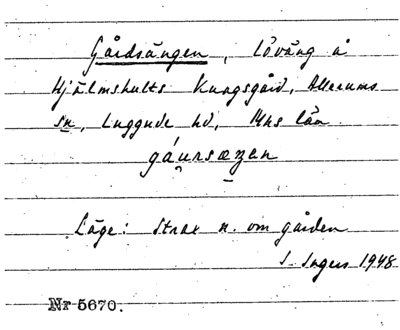 Gårdsängen, löväng å
Hjälmshults Kungsgård, Allerums
sn, Luggude hd, Mhs län.
gáu̯rsæŋen
Läge: Strax n. om gården
I. Ingers 1948
Nr 5670.